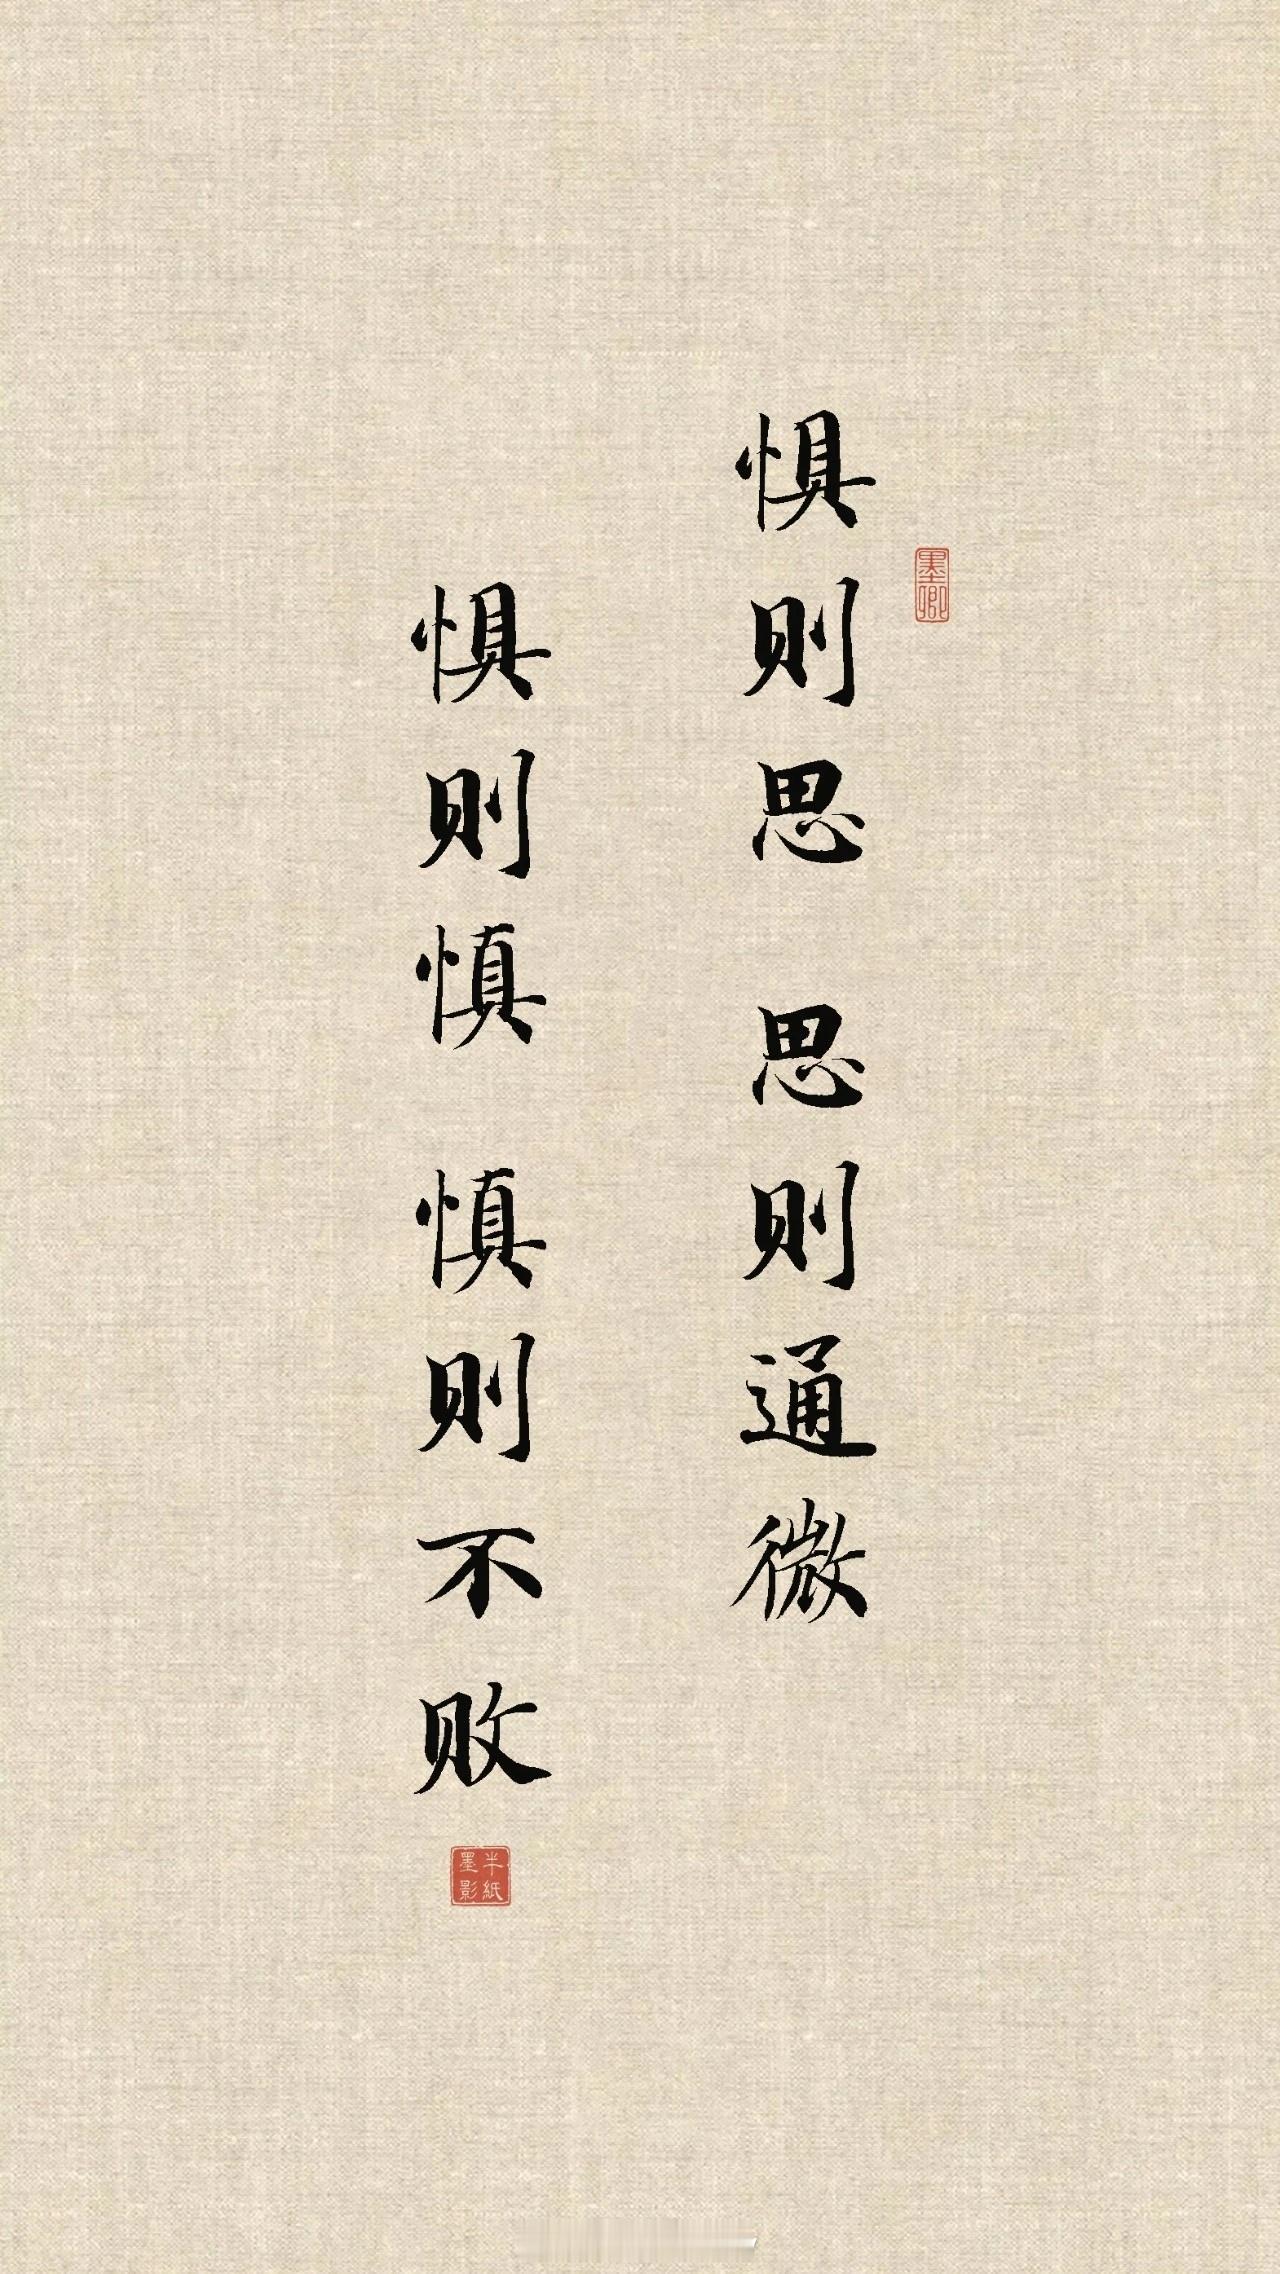 惧则思 思则通微
惧则慎 慎则不败
墨卿
半紙
墨影